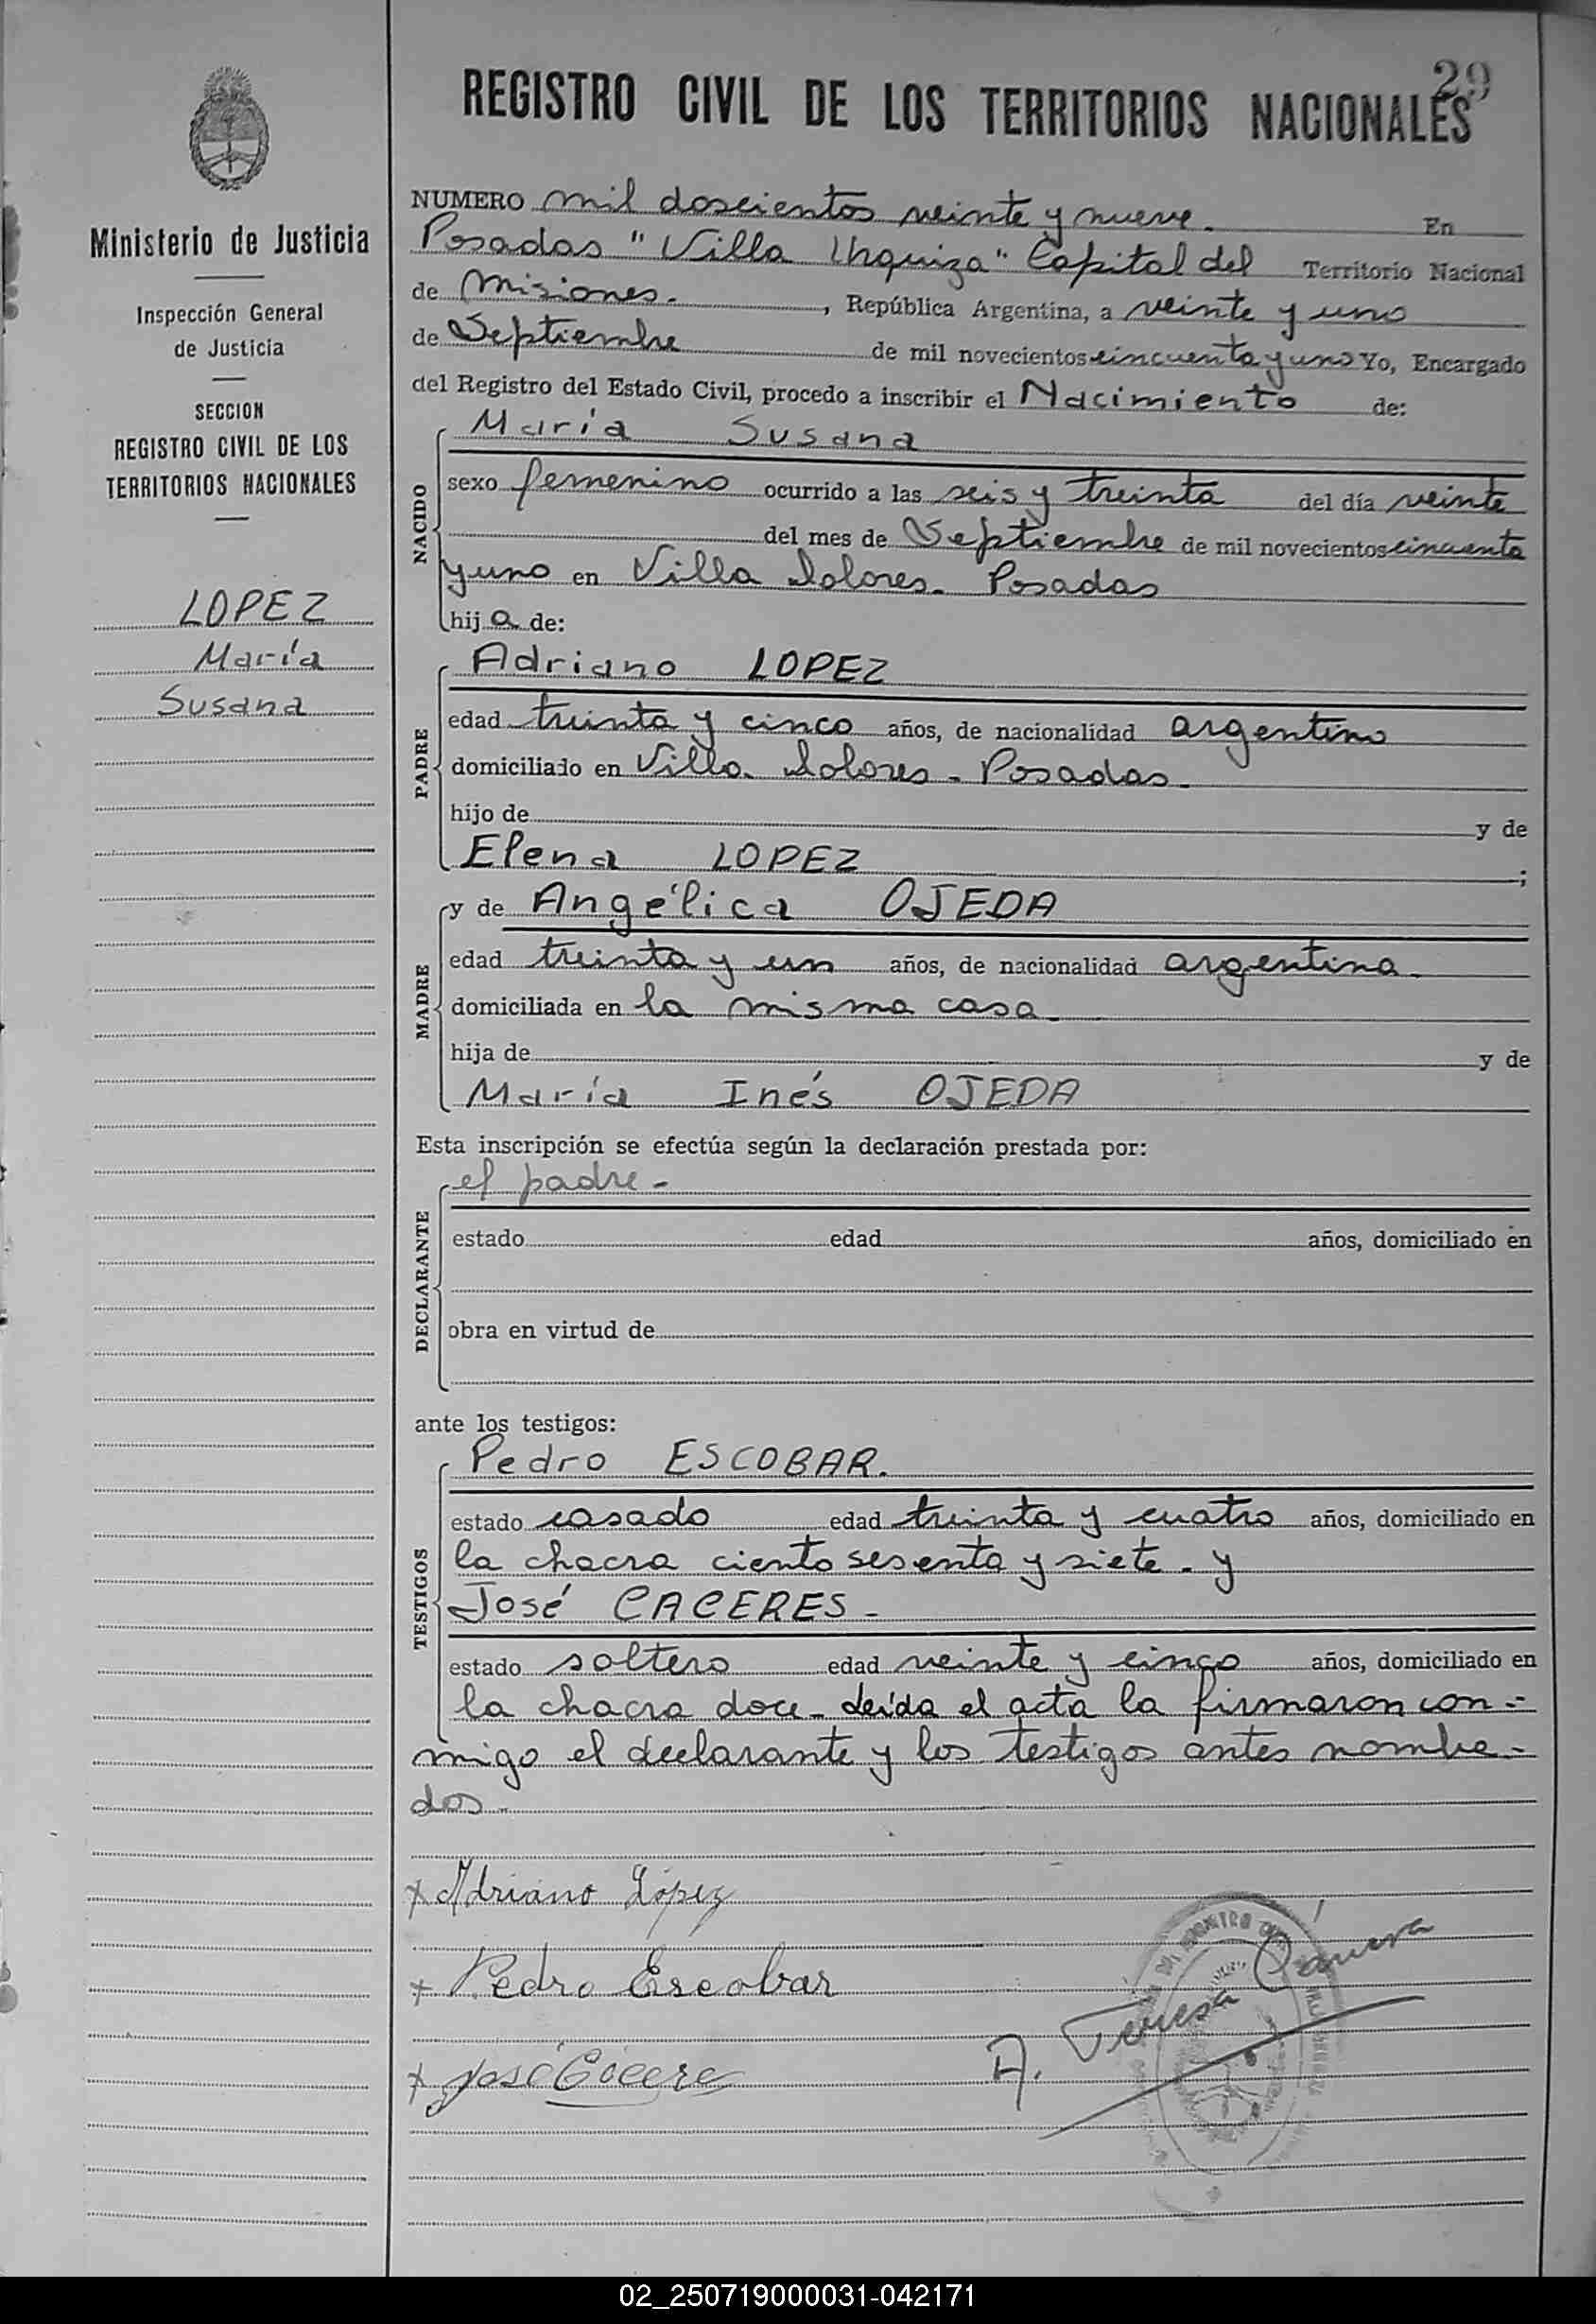 29
REGISTRO CIVIL DE LOS TERRITORIOS NACIONALES
Ministerio de Justicia
Inspección General
de Justicia
SECCION
REGISTRO CIVIL DE LOS
TERRITORIOS NACIONALES
LOPEZ
María
Susana
NUMERO mil doscientos veinte y nueve. En
Posadas "Villa Urquiza" Capital del Territorio Nacional
de Misiones. , República Argentina, a veinte y uno
de Septiembre de mil novecientos cincuenta y uno Yo, Encargado
del Registro del Estado Civil, procedo a inscribir el Nacimiento de:
NACIDO
María Susana
sexo femenino ocurrido a las seis y treinta del día veinte
del mes de Septiembre de mil novecientos cincuenta
y uno en Villa Dolores. Posadas
hij a de:
PADRE
Adriano LOPEZ
edad treinta y cinco años, de nacionalidad argentino
domiciliado en Villa Dolores - Posadas.
hijo de y de
Elena LOPEZ ;
MADRE
y de Angélica OJEDA
edad treinta y un años, de nacionalidad argentina.
domiciliada en la misma casa.
hija de y de
María Inés OJEDA
Esta inscripción se efectúa según la declaración prestada por:
DECLARANTE
el padre -
estado edad años, domiciliado en
obra en virtud de
ante los testigos:
TESTIGOS
Pedro ESCOBAR.
estado casado edad treinta y cuatro años, domiciliado en
la chacra ciento sesenta y siete. y
José CACERES -
estado soltero edad veinte y cinco años, domiciliado en
la chacra doce - Leída el acta la firmaron con -
migo el declarante y los testigos antes nombra -
dos -
x Adriano López
x Pedro Escobar
x José Cácere
A. Teresa
02_250719000031-042171